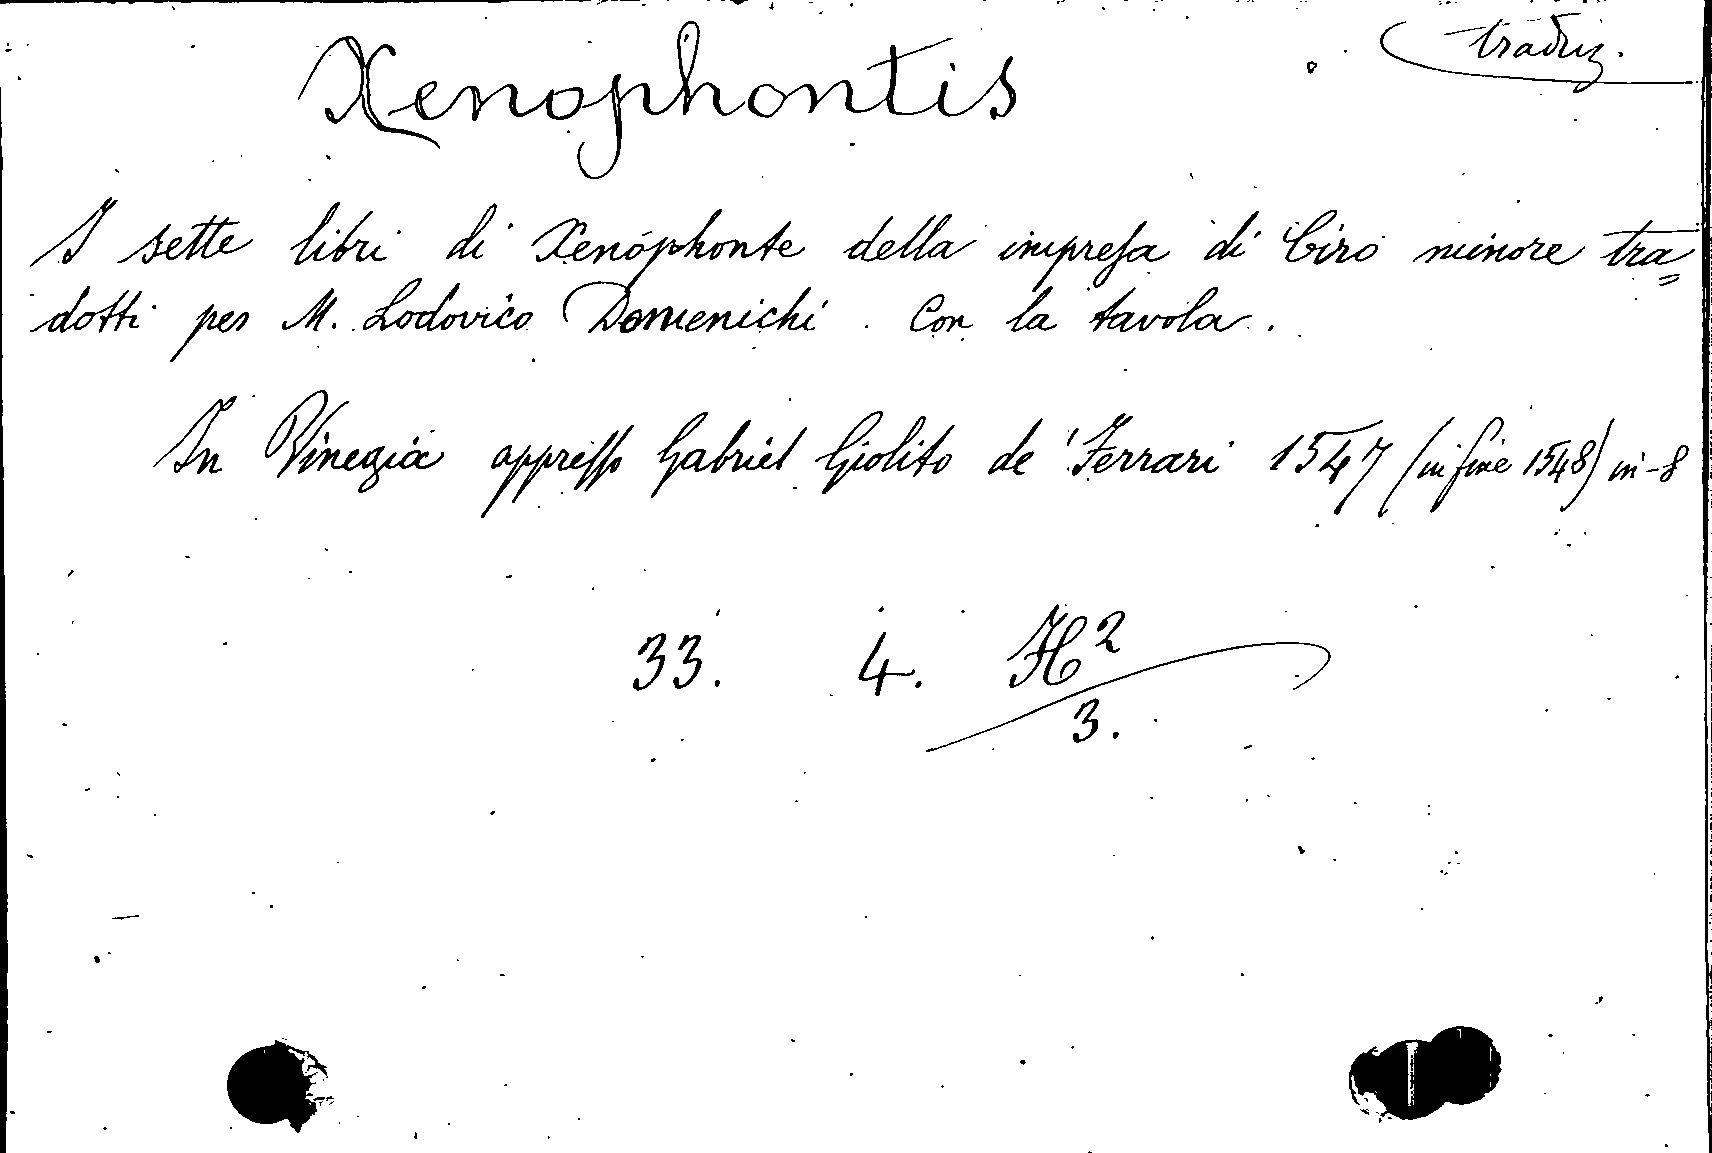 Xenophontis
tradiz.
I sette libri di Xenophonte della impresa di Ciro minore tra=
dotti per M. Lodovico Domenichi. Con la tavola.
In Vinegia appresso Gabriel Giolito de' Ferrari 1547 (in fine 1548) in-8
33. 4. H²
3.